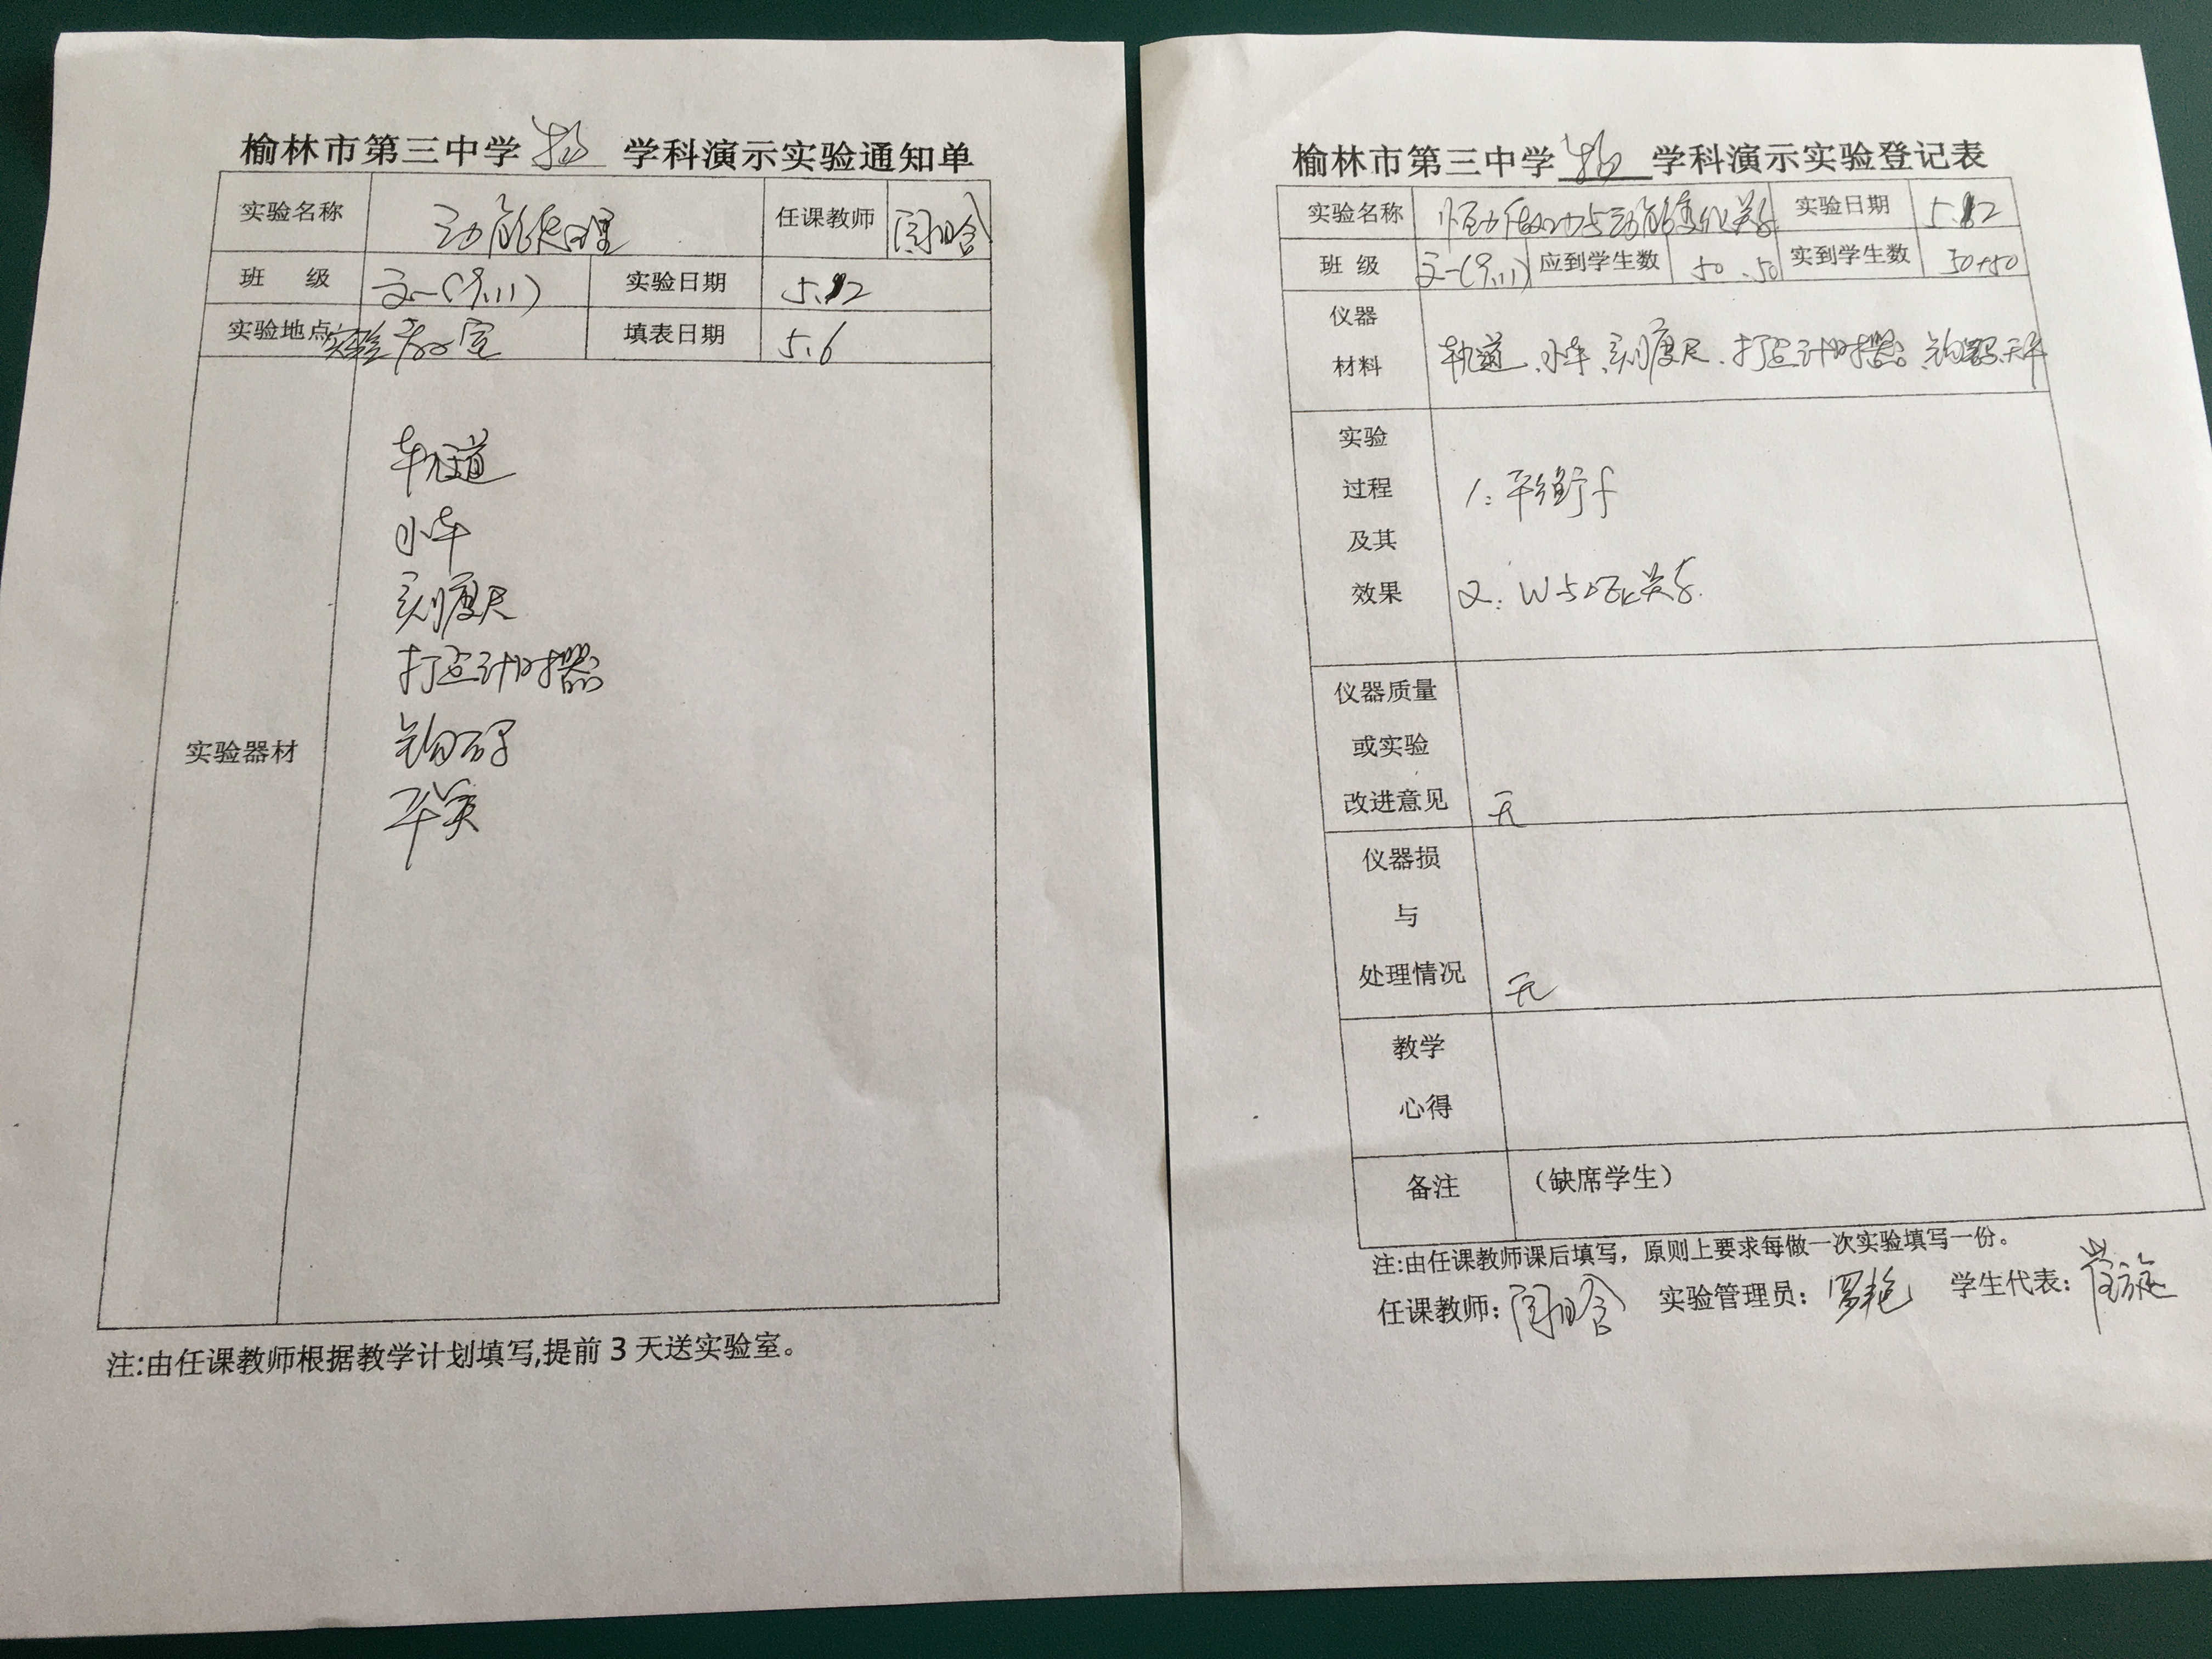 榆林市第三中学 物 学科演示实验通知单
实验名称 动能定理 任课教师
班 级 高一(9.11) 实验日期 5.12
实验地点 实验 室 填表日期 5.6
实验器材
轨道
小车
刻度尺
打点计时器
钩码
天平
注:由任课教师根据教学计划填写,提前3天送实验室。
榆林市第三中学 物 学科演示实验登记表
实验名称 恒力做功与动能变化关系 实验日期 5.12
班 级 高一(9.11) 应到学生数 50.50 实到学生数 50+50
仪器
材料 轨道、小车、刻度尺、打点计时器、钩码、天平
实验
过程 1:平衡f
及其
效果 2:W与ΔEk关系.
仪器质量
或实验
改进意见 无
仪器损
与
处理情况 无
教学
心得
备注 （缺席学生）
注:由任课教师课后填写，原则上要求每做一次实验填写一份。
任课教师: 实验管理员: 罗艳 学生代表: